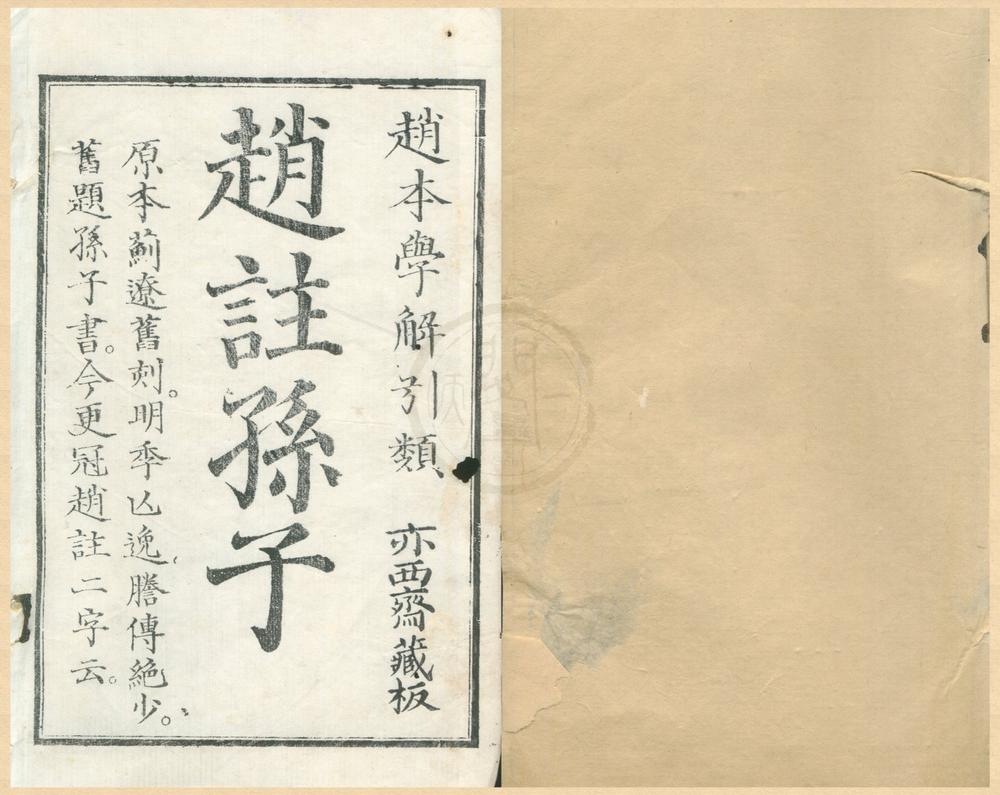 趙本學解引類　亦西齋藏板
趙註孫子
原本薊遼舊刻。明季亾逸、謄傳絶少。
舊題孫子書。今更冠趙註二字云。